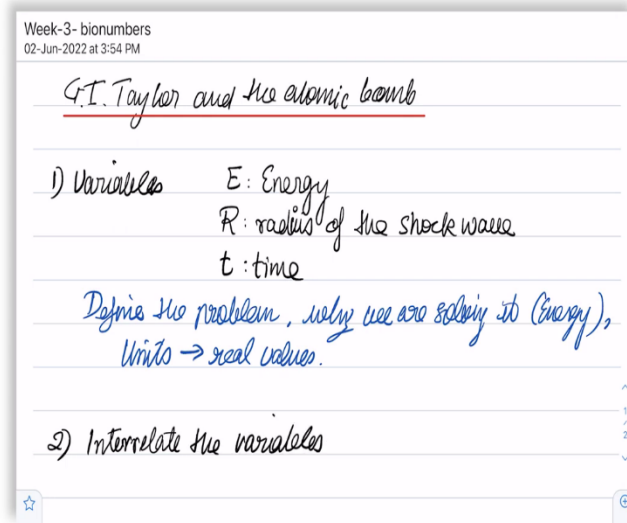 Week-3- bionumbers
02-Jun-2022 at 3:54 PM
G.I. Taylor and the atomic bomb
1) Variables E: Energy
R: radius of the shock wave
t: time
Define the problem, why we are solving it (Energy),
Units → real values.
2) Interrelate the variables